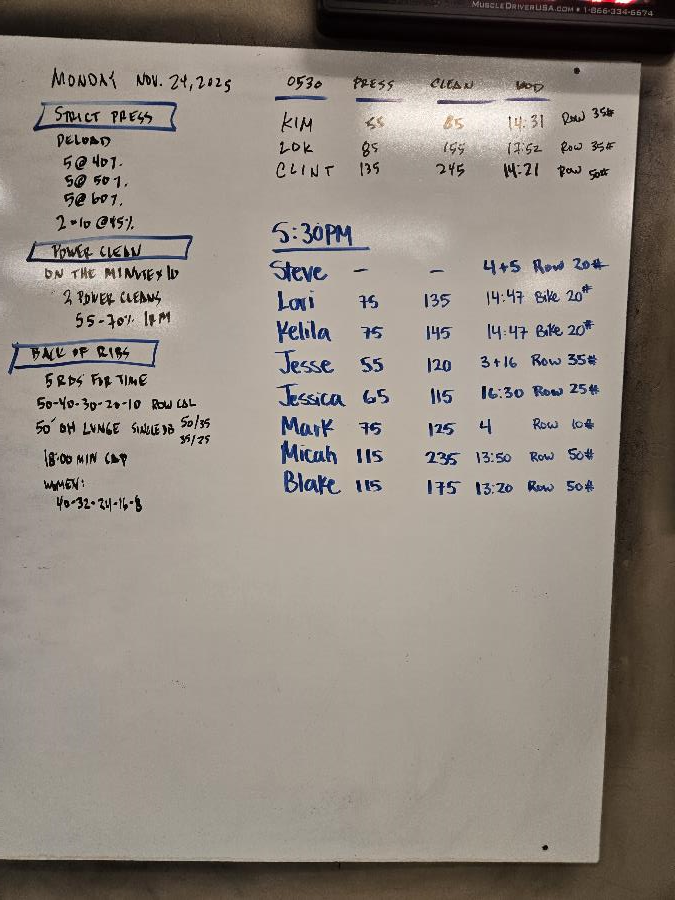 MUSCLEDRIVERUSA.COM • 1-866-334-6674
MONDAY NOV. 24, 2025
STRICT PRESS
DELOAD
5@40%
5@50%
5@60%
2×10@45%
POWER CLEAN
ON THE MINUTE × 10
2 POWER CLEANS
55-70% 1RM
BACK OF RIBS
5 RDS FOR TIME
50-40-30-20-10 ROW CAL
50' OH LUNGE SINGLE DB 50/35
35/25
18:00 MIN CAP
WOMEN:
40-32-24-16-8
0530 PRESS CLEAN WOD
KIM 55 85 14:31 ROW 35#
85 155 17:52 ROW 35#
CLINT 135 245 14:21 ROW 50#
5:30PM
Steve – – 4+5 Row 20#
Lori 75 135 14:47 Bike 20#
Kelila 75 145 14:47 Bike 20#
Jesse 55 120 3+16 Row 35#
Jessica 65 115 16:30 Row 25#
Mark 75 125 4 Row 10#
Micah 115 235 13:50 Row 50#
Blake 115 175 13:20 Row 50#